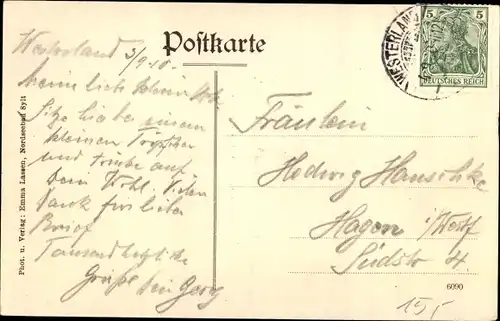 Postkarte
Westerland 3/9.10.
mein lieb
Sitze hier bei einem
kleinen Tröpfchen
und trinke auf
Dein Wohl. Vielen
Dank für lieben
Brief
Tausend herzliche
Grüße Dein Georg
Phot. u. Verlag: Emma Lassen, Nordseebad Sylt
WESTERLAND
5 5
DEUTSCHES REICH
Fräulein
Hedwig Hanschke
Hagen i/Westf
Südstr 4.
6090
15,-